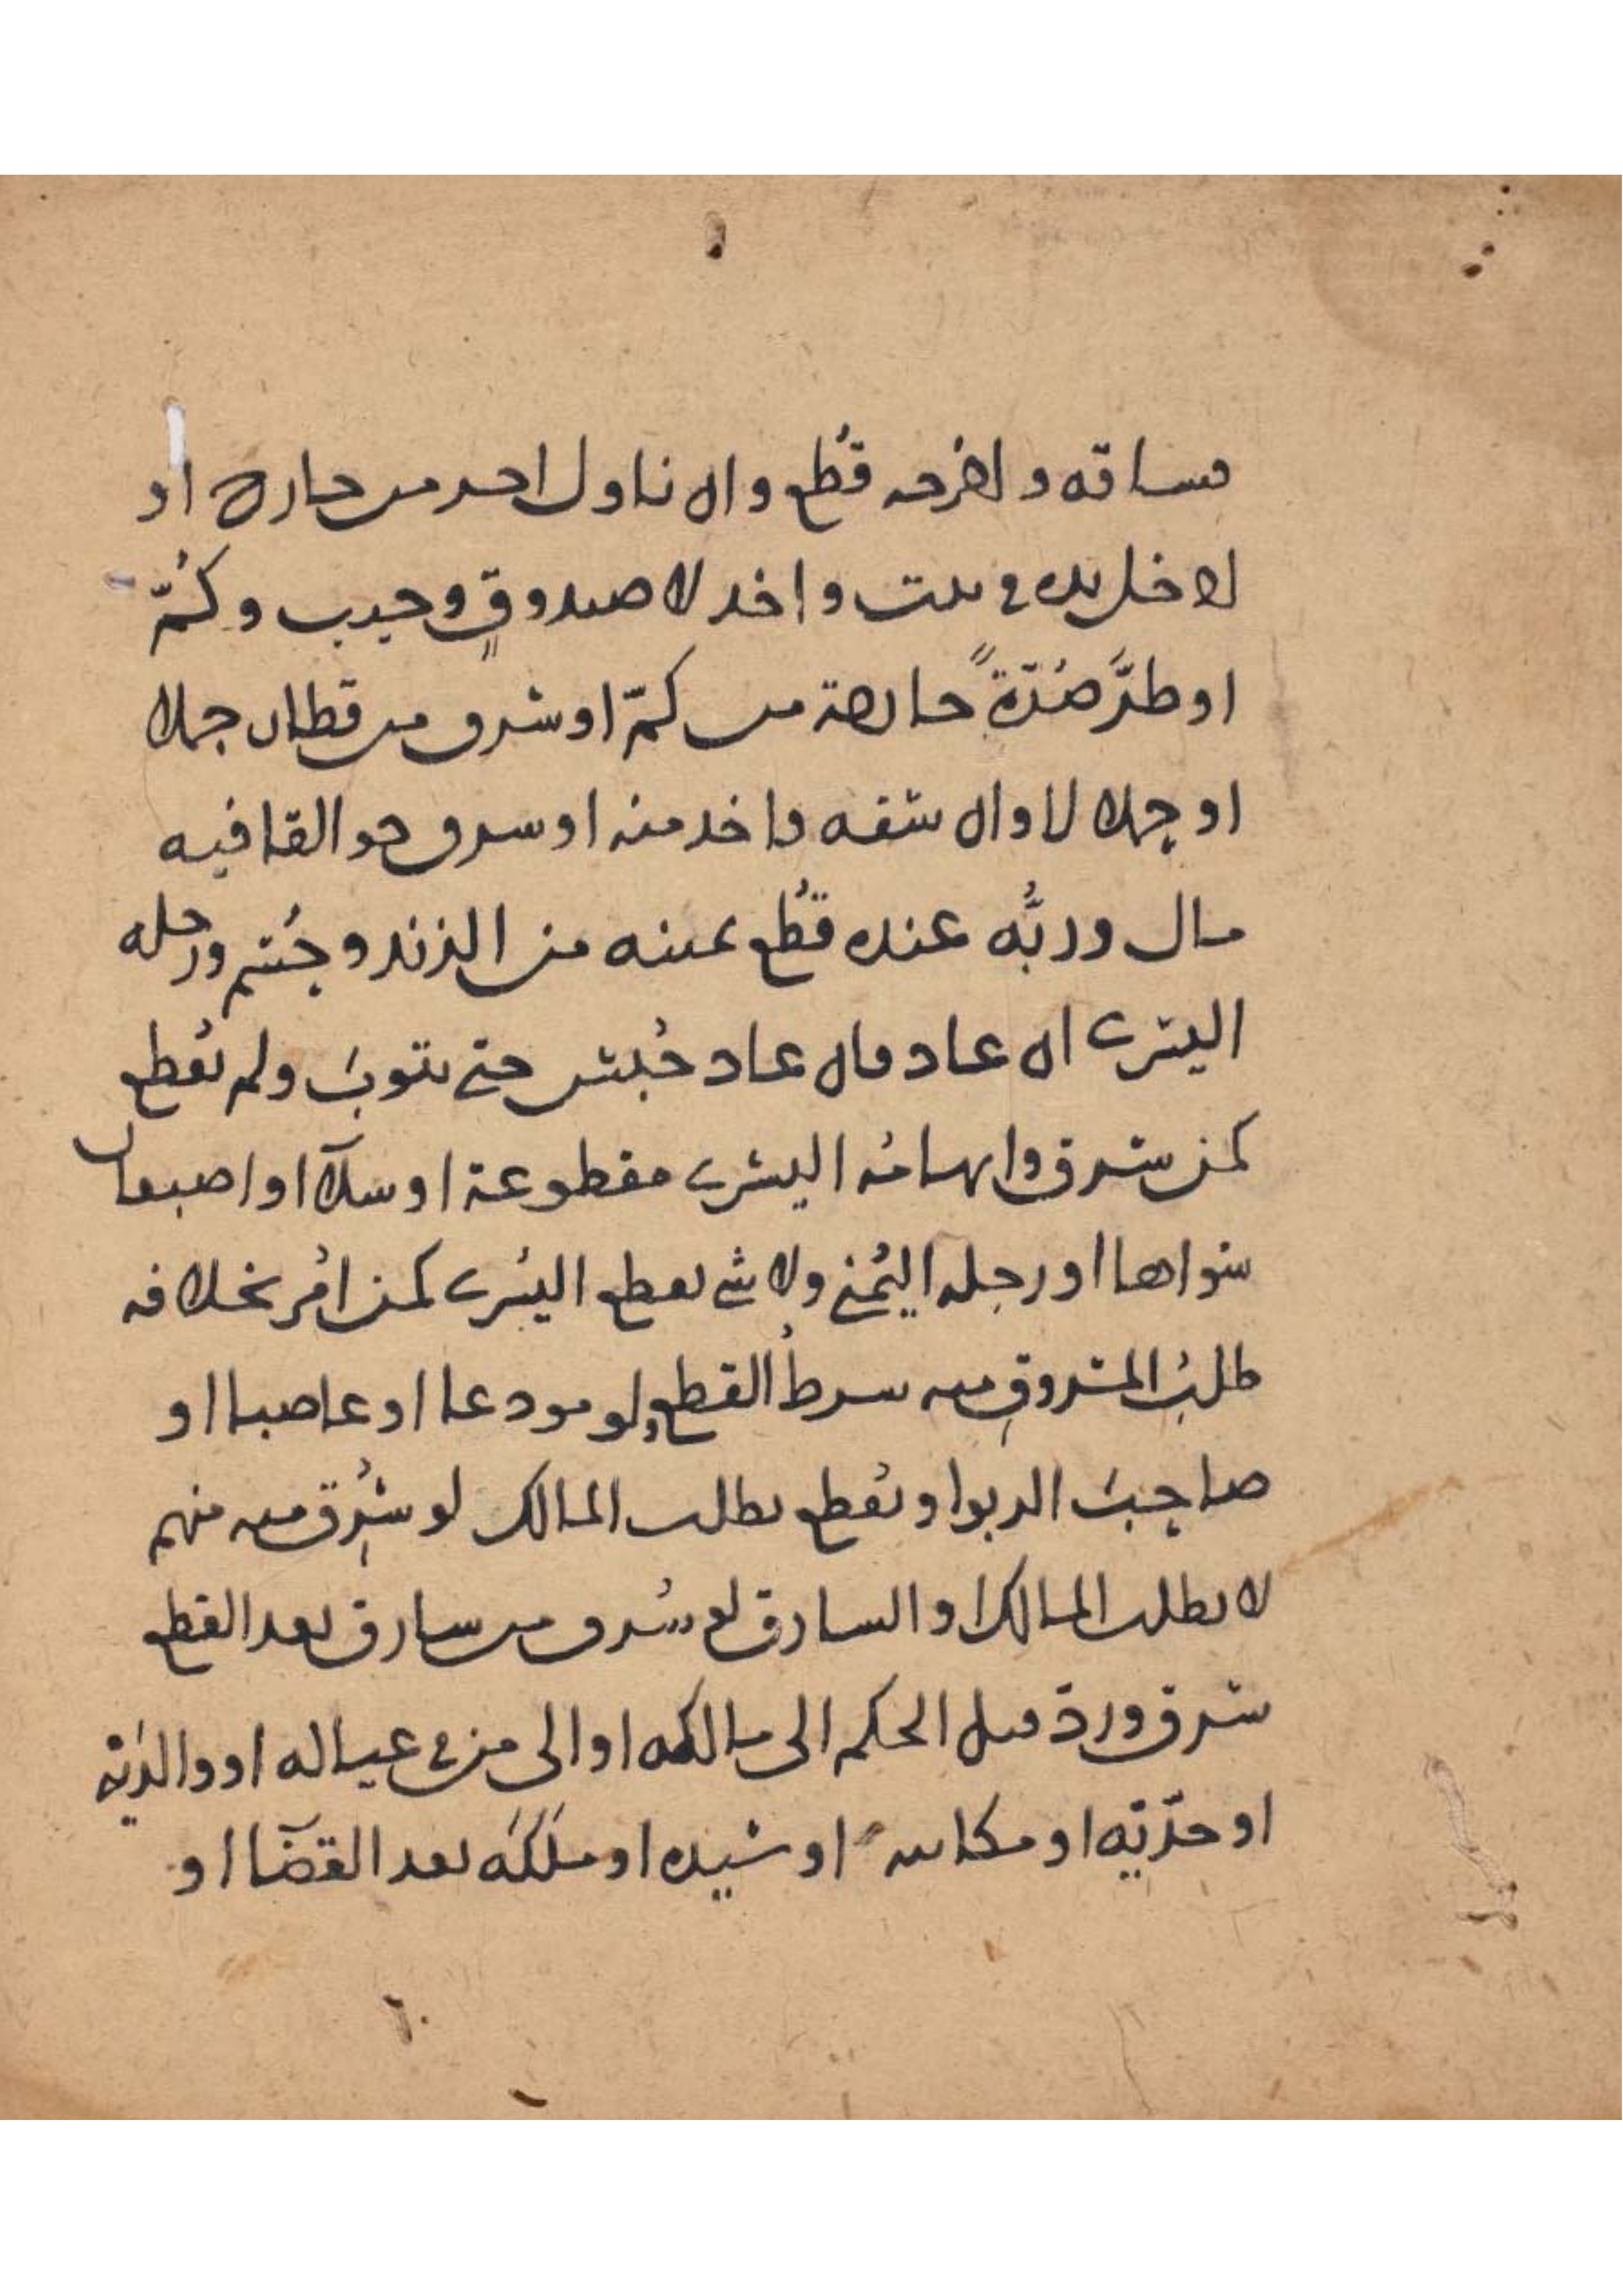 فساقه واخرجه قطع وان ناول اخر من خارج او
ادخل يده في بيت واخذ لا صندوق وجيب وكم
او طر صرة خارجة من كم او سرق من قطار جملا
او حملا لا وان شقه واخذ منه او سرق جوالقا فيه
مال وربه عنده قطع يمينه من الزند وحسم ورجله
اليسرى ان عاد فان عاد حبس حتى يتوب ولم يقطع
كمن سرق وابهامه اليسرى مقطوعة او شلاء او اصبعان
سواها او رجله اليمنى ولا شي بقطع اليسرى كمن امر بخلافه
طلب المسروق منه شرط القطع ولو مودعا او غاصبا او
صاحب الربوا ويقطع بطلب المالك لو سرق منه منهم
لا بطلب المالك او السارق لو سرق من سارق بعد القطع
سرق ورد قبل الحكم الى مالكه او الى من في عياله او والديه
او جديه او مكاتبه او سيده او ملكه بعد القضا او